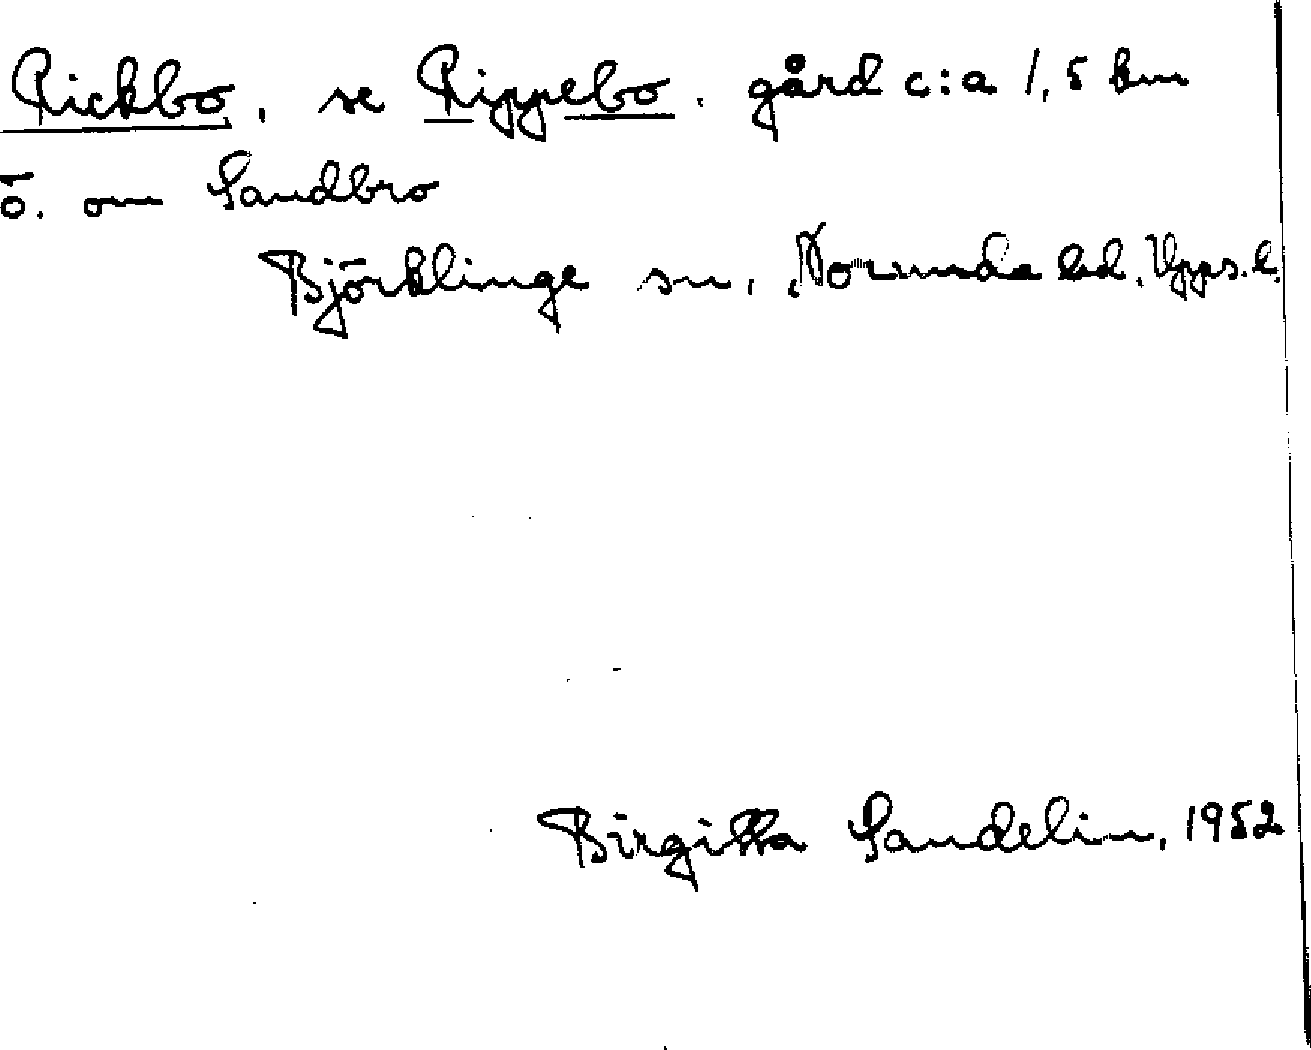 Rickbo, se Rippebo. gård c:a 1,5 km
ö. om Sandbro
Björklinge sn, Norunda hd. Upps. l.
Birgitta Sandelin, 1952